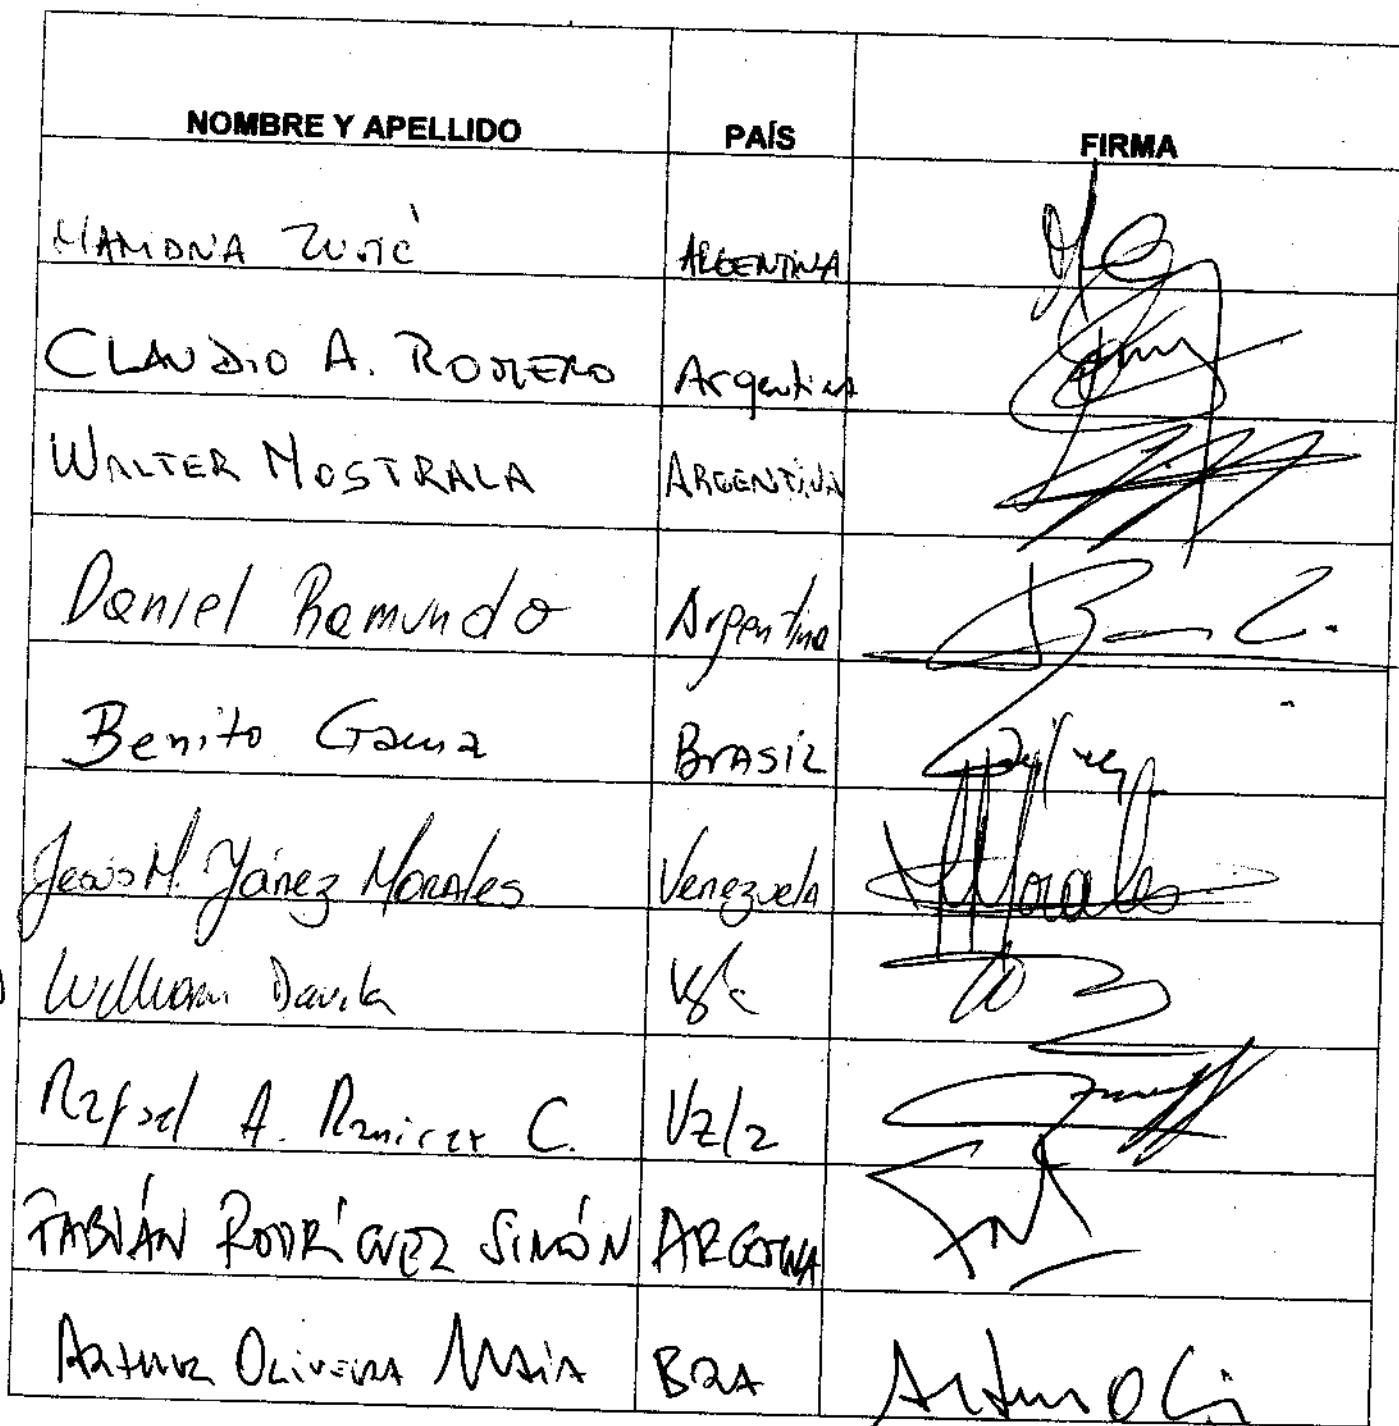 NOMBRE Y APELLIDO PAÍS FIRMA
ARGENTINA
CLAUDIO A. ROMERO Argentina
WALTER MOSTRALA ARGENTINA
Daniel Ramundo Argentina
Benito Gama BRASIL
Jesús M. Yánez Morales Venezuela Morales
William Davila
Rafael A. Ramirez C. Vz/a
FABIÁN RODRÍGUEZ SIMÓN ARGENTINA
ARTHUR OLIVEIRA MAIA BRA